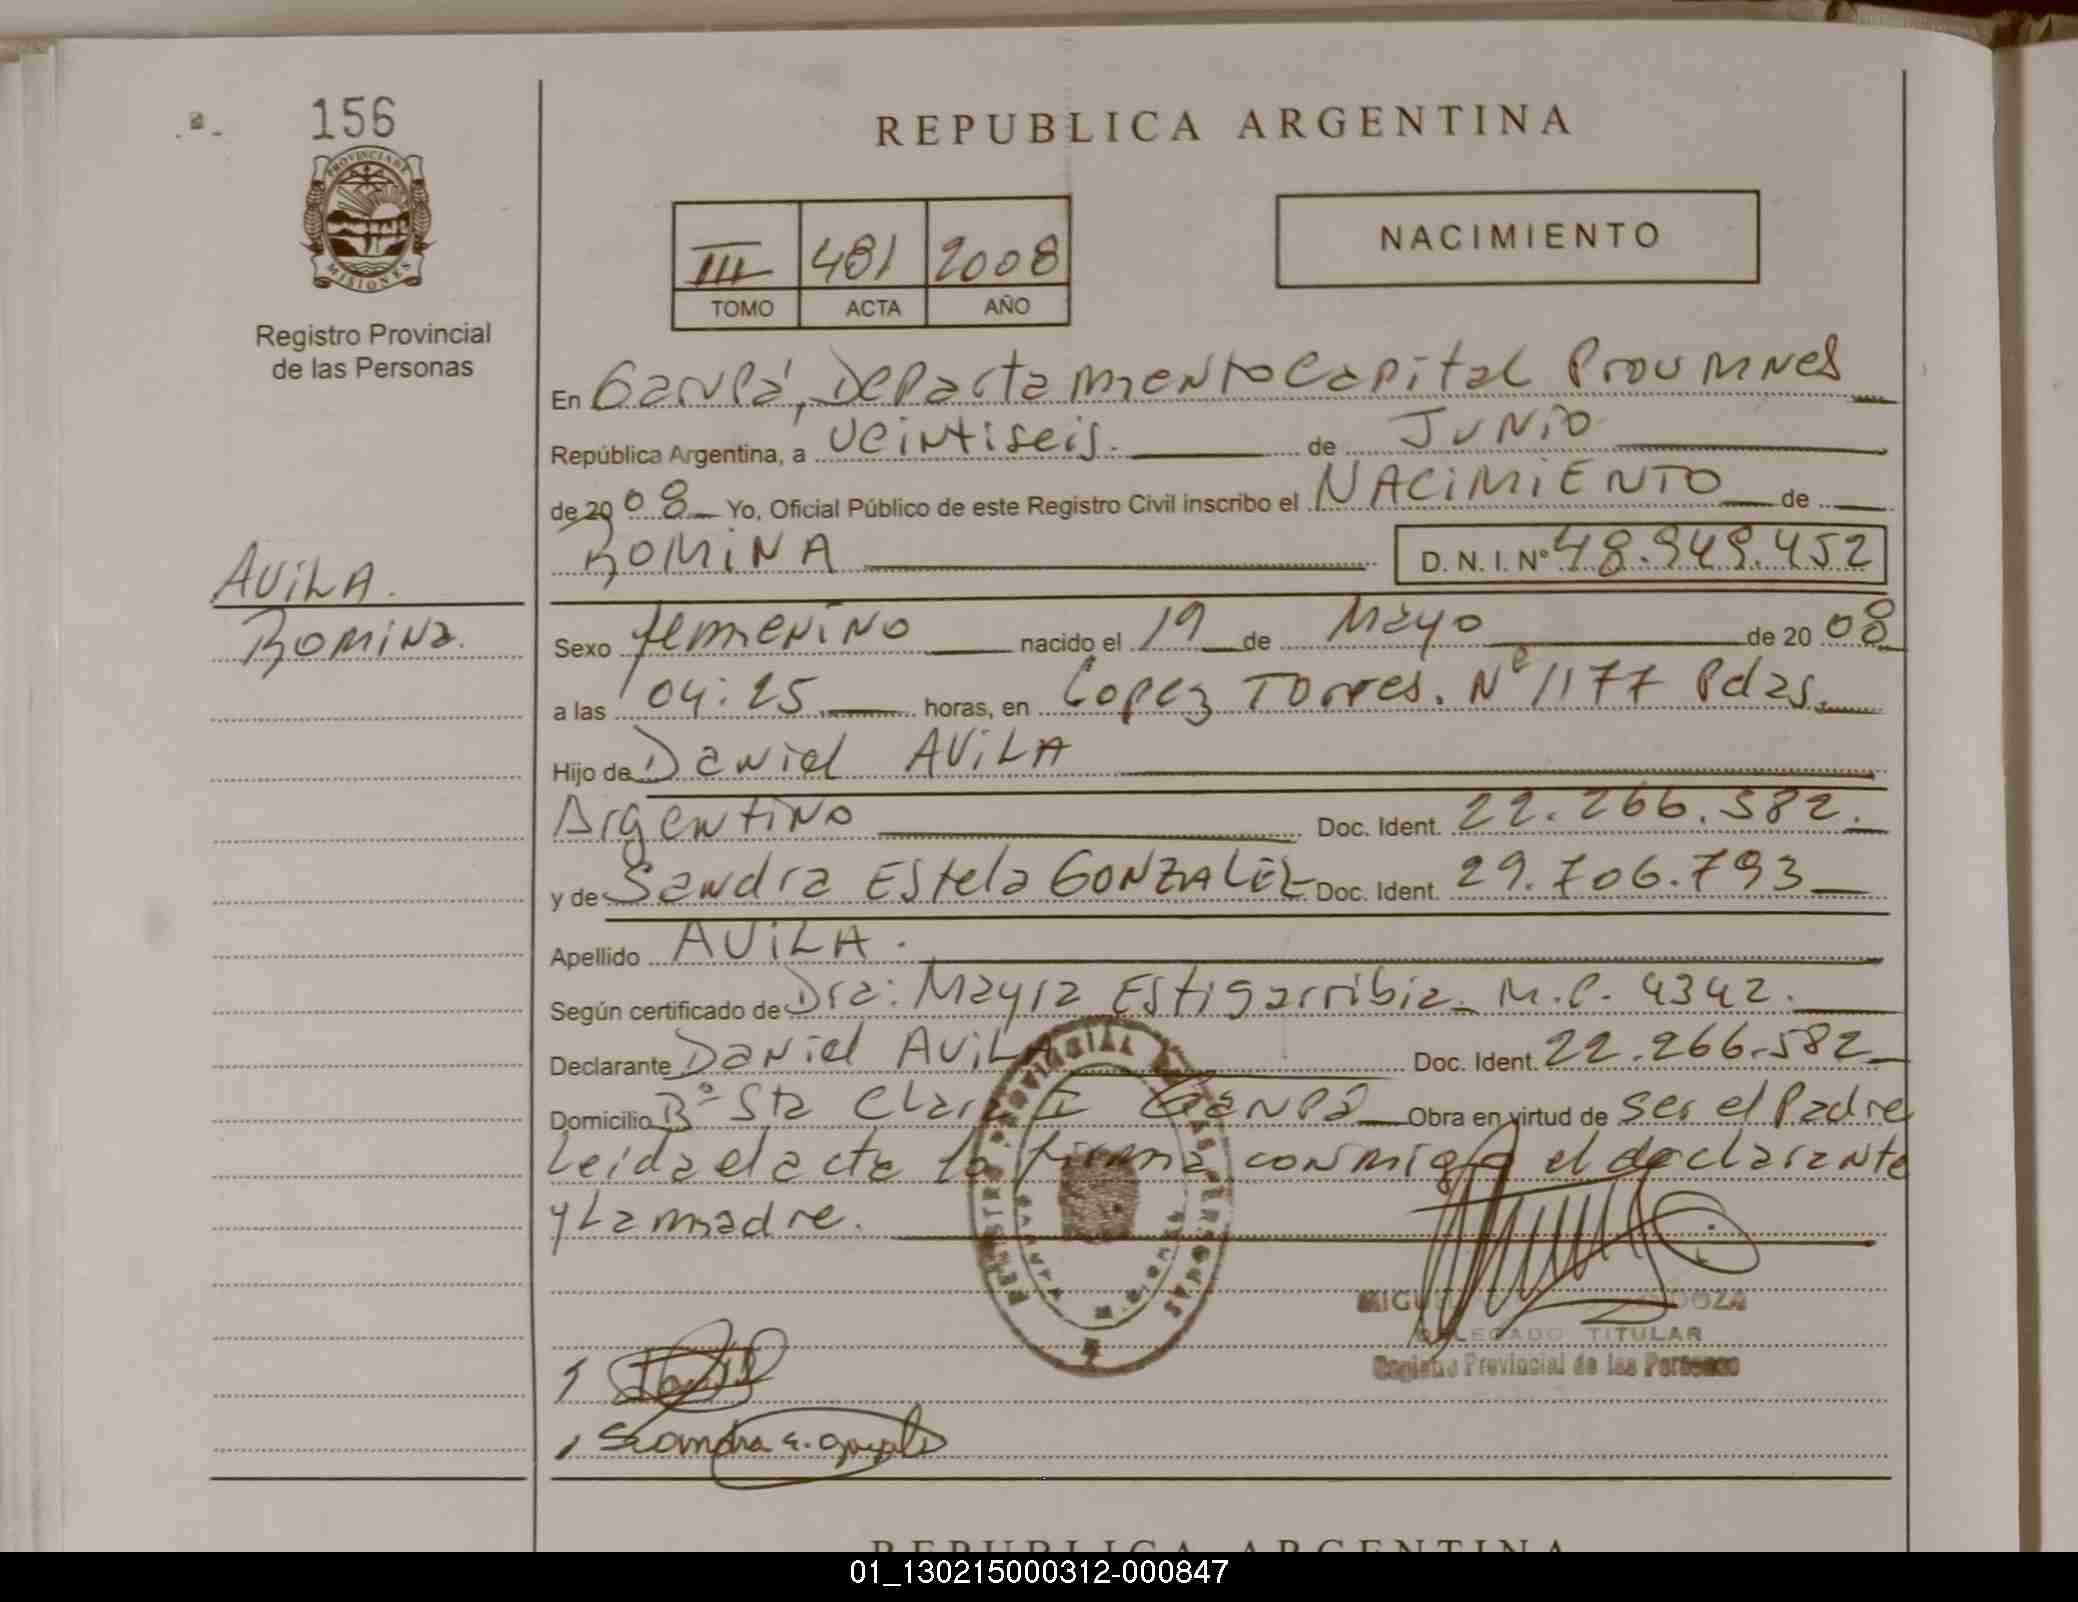 156
PROVINCIA DE
MISIONES
Registro Provincial
de las Personas
AVILA.
Romina.
REPUBLICA ARGENTINA
III 481 2008
TOMO ACTA AÑO
NACIMIENTO
En Garupá, Departamento Capital Prov Mnes
República Argentina, a veintiseis. de Junio
de 2008 Yo, Oficial Público de este Registro Civil inscribo el NACIMIENTO de
ROMINA D. N. I. Nº 48.949.452
Sexo femenino nacido el 19 de Mayo de 2008
a las 04:25 horas, en Lopez Torres. Nº 1177 Pdas.
Hijo de Daniel AVILA
Argentino Doc. Ident. 22.266.582.
y de Sandra Estela GONZALEZ Doc. Ident. 29.706.793
Apellido AVILA.
Según certificado de Dra: Mayra Estigarribia. M.P. 4342.
Declarante Daniel AVILA Doc. Ident. 22.266.582
Domicilio Bº Sta Clara I Garupá Obra en virtud de ser el Padre
Leida el acta la firma conmigo el declarante
y La madre.
REGISTRO PROVINCIAL DE LAS PERSONAS
MIGUEL MENDOZA
DELEGADO TITULAR
Registro Provincial de las Personas
Sandra E. Gonzalez
REPUBLICA ARGENTINA
01_130215000312-000847